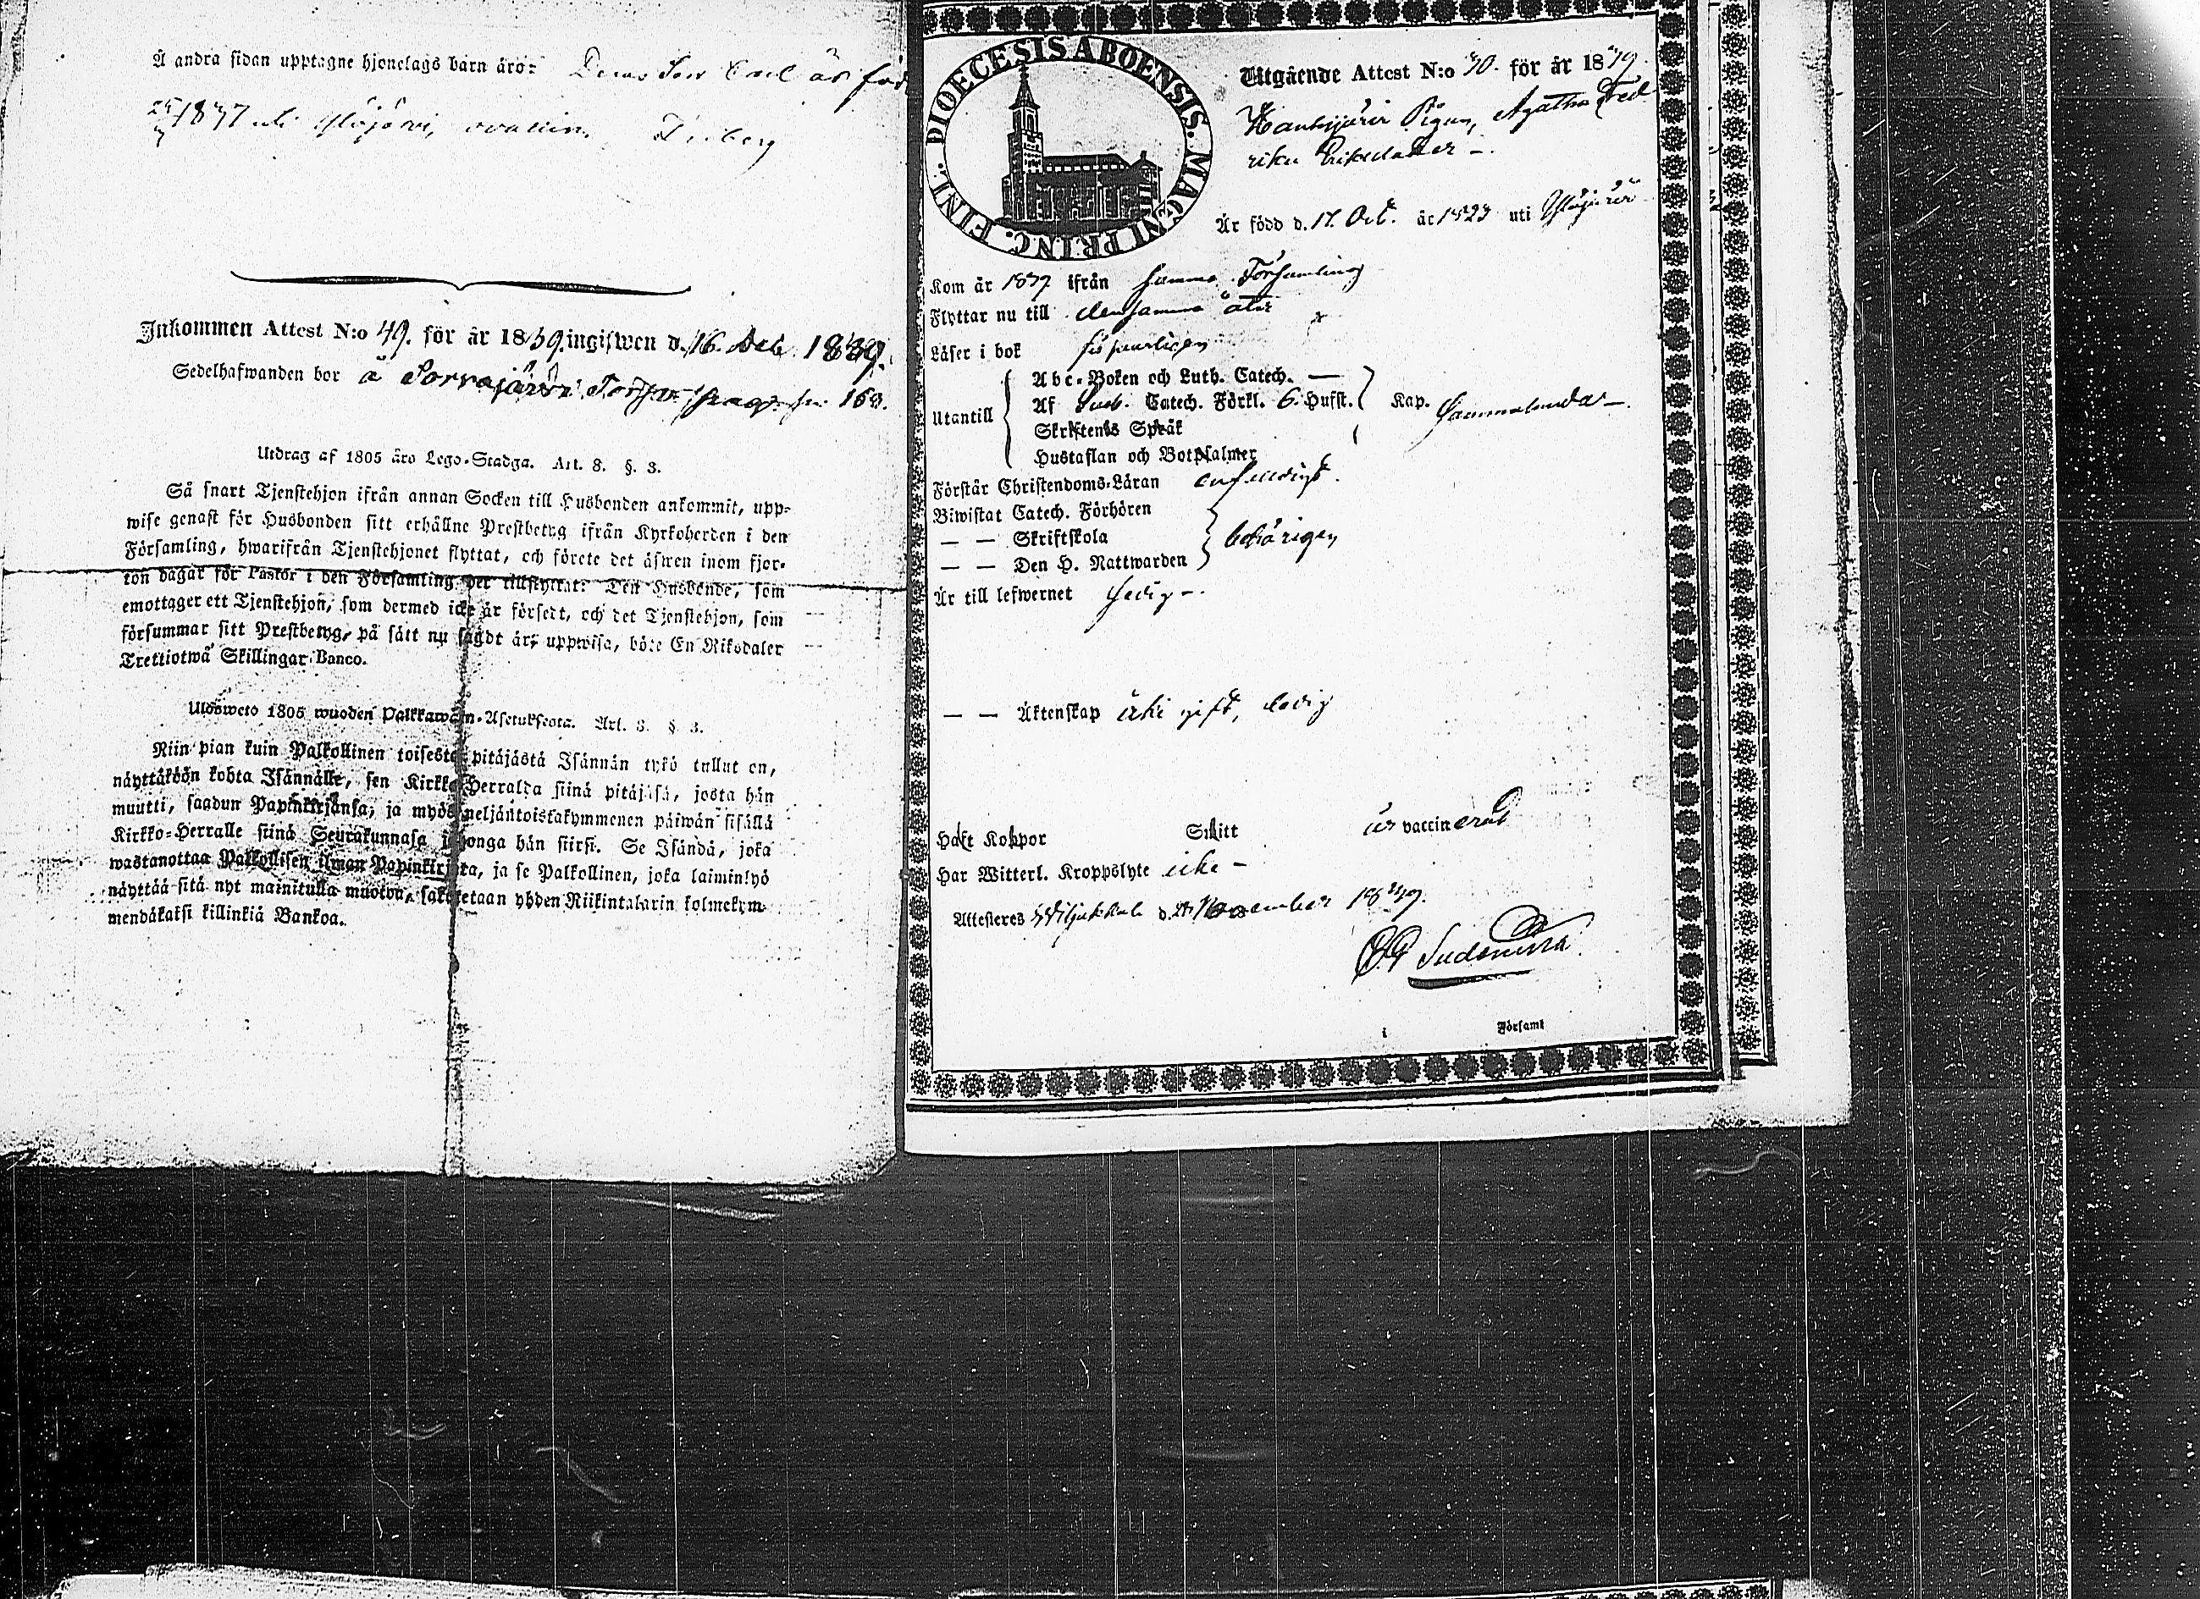 Å andra sidan upptagne hjonelags barn äro: Deras Son Carl är föd
1837 uti Ylöjärvi, ovaccin. Friberg
Inkommen Attest N:o 49. för år 1839. ingifwen d. 16 Deb. 1839.
Sedelhafwanden bor å Sorvajärvi 163.
Utdrag af 1805 års Lego-Stadga. Art. 8. §. 3.
Så snart Tjenstehjon ifrån annan Socken till Husbonden ankommit, upp-
wise genast för Husbonden sitt erhållne Prestbetyg ifrån Kyrkoherden i den
Församling, hwarifrån Tjenstehjonet flyttat, och förete det äfwen inom fjor-
ton dagar för Pastor i den Församling der tillflyttat: Den Husbonde, som
emottager ett Tjenstehjon, som dermed icke är försedt, och det Tjenstehjon, som
försummar sitt Prestbetyg, på sätt nu sagdt är, uppwisa, böte En Riksdaler
Trettiotwå Skillingar Banco.
Ulosweto 1805 wuoden Palkkawäen-Asetuksesta. Art. 8. § 3.
Niin pian kuin Palkollinen toisesta pitäjästä Isännän tykö tullut on,
näyttäköön kohta Isännälle, sen Kirkko-Herralda siinä pitäjäsä, josta hän
muutti, saadun Papinkirjansa, ja myös neljäntoistakymmenen päiwän sisällä
Kirkko-Herralle siinä Seurakunnasa johonga hän siirsi. Se Isändä, joka
wastanottaa Palkollisen ilman Papinkirjata, ja se Palkollinen, joka laiminlyö
näyttää sitä nyt mainitulla muotoa, sakotetaan yhden Riikintalarin kolmekym-
mendäkaksi killinkiä Bankoa.
DIOECESIS ABOENSIS. MAGNI PRINC. FINL.
Utgående Attest N:o 30. för år 1839.
Pigan, Agatha Fred
rika Eriksdotter –.
Är född d. 17. Oct. år 1823 uti Ylöjärvi
Kom år 1837 ifrån samma Församling
Flyttar nu till densamma åter
Läser i bok försvarligen
Utantill
Abc-Boken och Luth. Catech. —
Af Sveb. Catech. Förkl. 6. Hufst. Kap. sammalunda –.
Skriftenes Språk
Hustaflan och BotPsalmer
Förstår Christendoms-Läran enfaldigt.
Biwistat Catech. Förhören
— — Skriftskola behörigen
— — Den H. Nattwarden
Är till lefwernet ledig –.
— — Äktenskap icke gift, ledig
Haft Koppor Smitt är vaccinerad
Har Witterl. Kroppslyte icke –
Attesteres Wiljakkala d. November 1839.
Församl